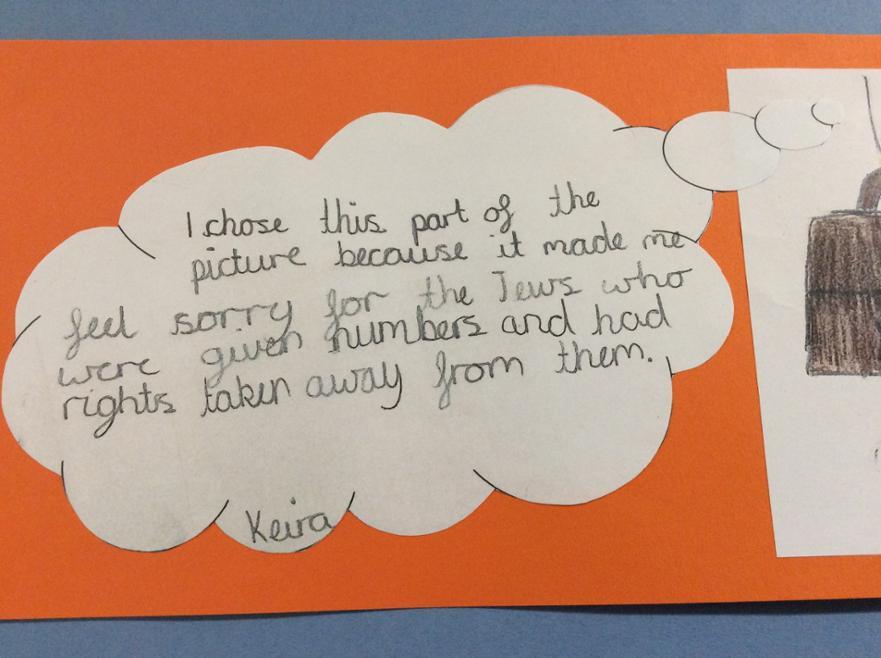 I chose this part of the
picture because it made me
feel sorry for the Jews who
were given numbers and had
rights taken away from them.
Keira